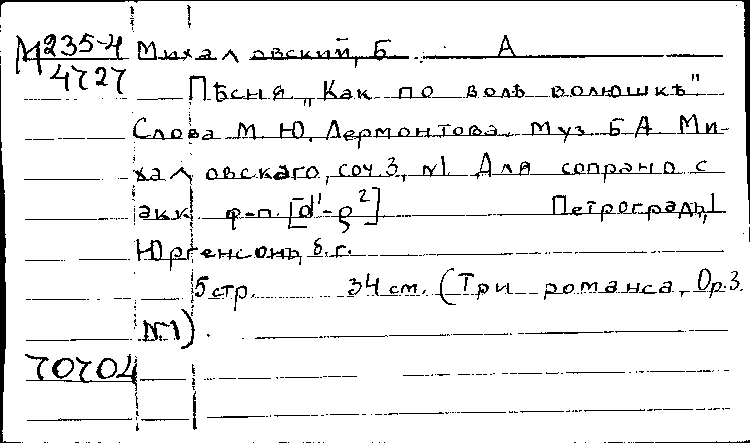 М 235-4 Михаловский, Б. А
4727
Пѣсня „Какъ по волѣ волюшкѣ"
Слова М. Ю. Лермонтова. Муз Б А. Ми-
халовскаго, соч. 3, №1. Для сопрано с
акк ф-п. [d'-g²] Петроградъ,
Юргенсонъ, б. г.
5 стр. 34 см. (Три романса, Op. 3.
№1).
70704